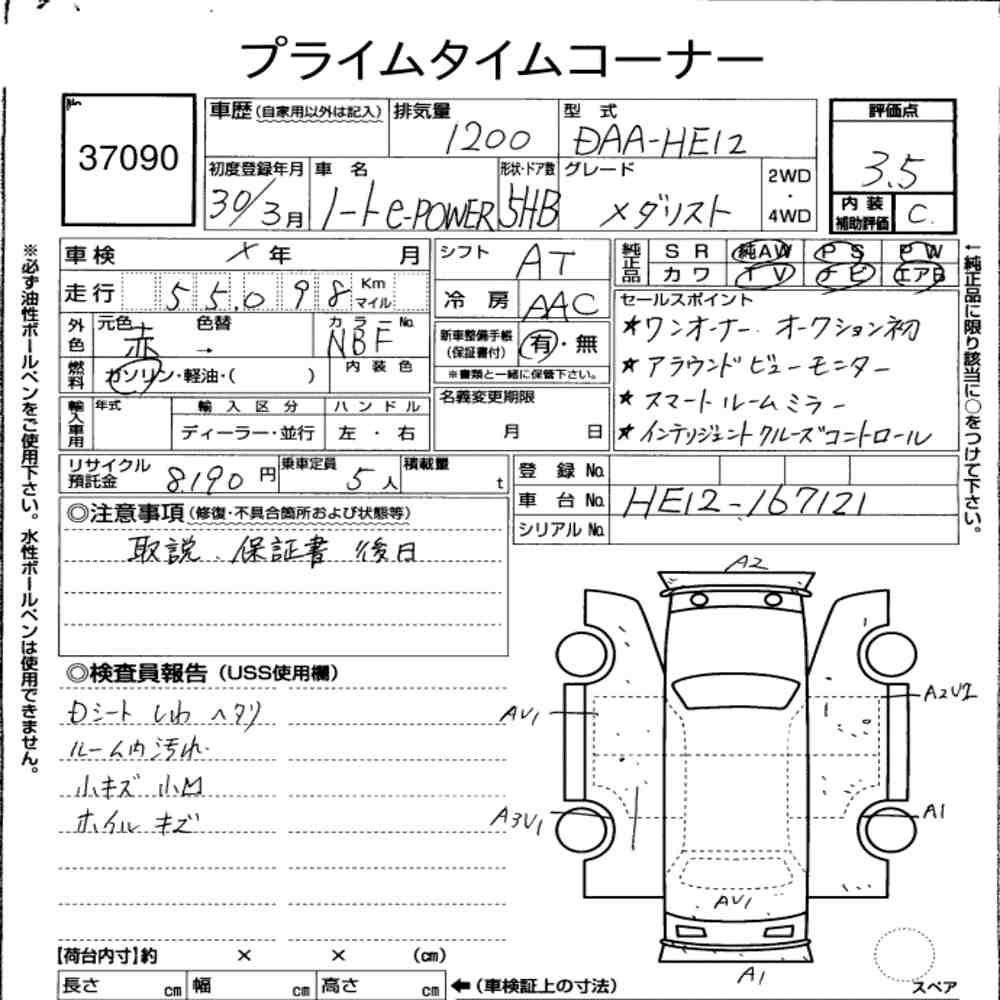 プライムタイムコーナー
37090
車歴 (自家用以外は記入) 排気量 1200 型式 DAA-HE12
評価点 3.5
内装補助評価 C
初度登録年月 30/3月 車名 ノートe-POWER 形状・ドア数 5HB グレード メダリスト 2WD・4WD
車検 × 年 月
走行 55.098 Km マイル
シフト AT
冷房 AAC
純正品 SR 純AW PS PW
カワ TV ナビ エアB
外色 元色 赤 色替 → カラーNo. NBF
燃料 ガソリン・軽油・( ) 内装色
新車整備手帳(保証書付) 有・無
※書類と一緒に保管下さい。
セールスポイント
★ワンオーナー オークション初
★アラウンドビューモニター
★スマートルームミラー
★インテリジェントクルーズコントロール
輸入車用 年式 輸入区分 ハンドル
ディーラー・並行 左・右
名義変更期限
月 日
リサイクル預託金 8.190円 乗車定員 5人 積載量 t
登録No.
車台No. HE12-167121
シリアルNo.
◎注意事項(修復・不具合箇所および状態等)
取説、保証書 後日
◎検査員報告(USS使用欄)
Dシート しわ ヘタリ
ルーム内汚れ
小キズ 小凹
ホイル キズ
A2
AV1
A3V1
A1
AV1
A1
スペア
【荷台内寸】約 × × (cm)
長さ cm 幅 cm 高さ cm ←(車検証上の寸法)
※必ず油性ボールペンをご使用下さい。水性ボールペンは使用できません。
←純正品に限り該当に○をつけて下さい。